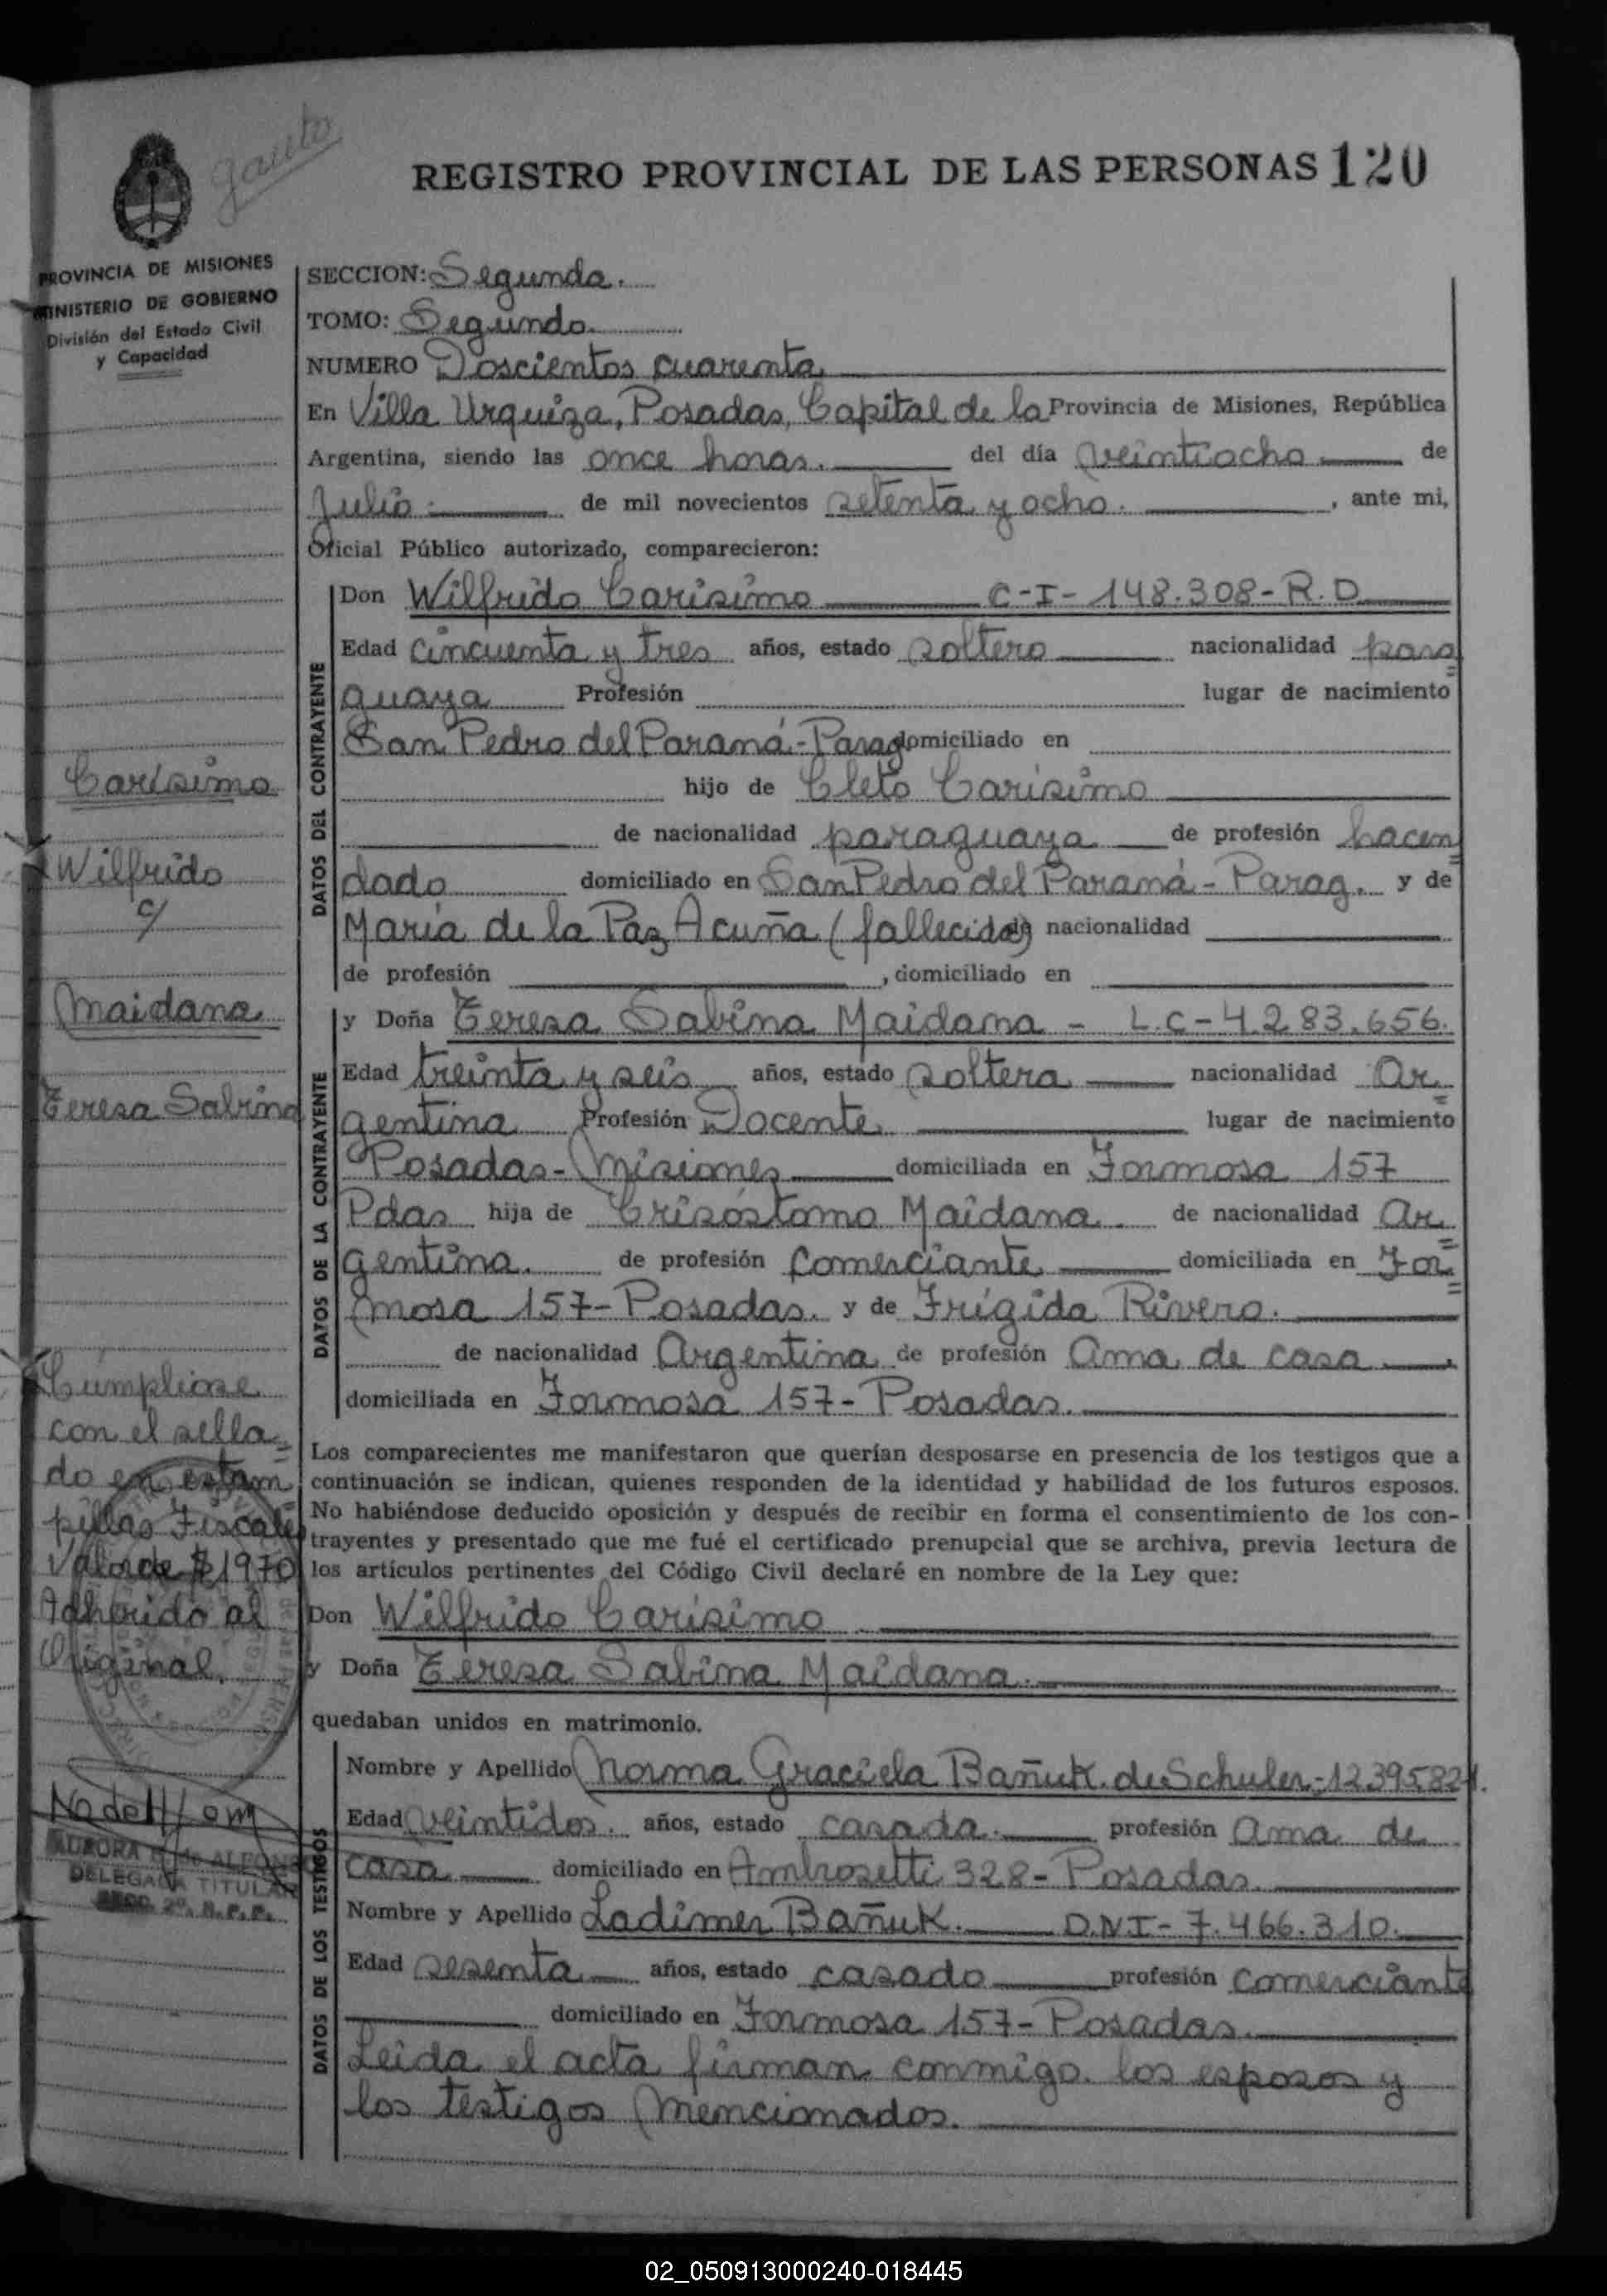 Gauto
REGISTRO PROVINCIAL DE LAS PERSONAS 120
PROVINCIA DE MISIONES
MINISTERIO DE GOBIERNO
División del Estado Civil
y Capacidad
SECCION: Segunda.
TOMO: Segundo.
NUMERO Doscientos cuarenta
En Villa Urquiza, Posadas, Capital de la Provincia de Misiones, República
Argentina, siendo las once horas. del día veintiocho de
Julio. de mil novecientos setenta y ocho. , ante mi,
Oficial Público autorizado, comparecieron:
DATOS DEL CONTRAYENTE
Don Wilfrido Carísimo C-I- 148.308-R.D
Edad cincuenta y tres años, estado soltero nacionalidad para=
guaya Profesión lugar de nacimiento
San Pedro del Paraná-Parag domiciliado en
hijo de Cleto Carísimo
de nacionalidad paraguaya de profesión hacen=
dado domiciliado en San Pedro del Paraná - Parag. y de
María de la Paz Acuña (fallecida) de nacionalidad
de profesión , domiciliado en
DATOS DE LA CONTRAYENTE
y Doña Teresa Sabina Maidana - L.C-4.283.656.
Edad treinta y seis años, estado soltera nacionalidad Ar=
gentina Profesión Docente lugar de nacimiento
Posadas-Misiones domiciliada en Formosa 157
Pdas hija de Crisóstomo Maidana. de nacionalidad Ar=
gentina. de profesión Comerciante domiciliada en For=
mosa 157-Posadas. y de Frígida Rivero.
de nacionalidad Argentina de profesión Ama de casa
domiciliada en Formosa 157- Posadas.
Los comparecientes me manifestaron que querían desposarse en presencia de los testigos que a
continuación se indican, quienes responden de la identidad y habilidad de los futuros esposos.
No habiéndose deducido oposición y después de recibir en forma el consentimiento de los con-
trayentes y presentado que me fué el certificado prenupcial que se archiva, previa lectura de
los artículos pertinentes del Código Civil declaré en nombre de la Ley que:
Don Wilfrido Carísimo
y Doña Teresa Sabina Maidana.
quedaban unidos en matrimonio.
DATOS DE LOS TESTIGOS
Nombre y Apellido Norma Graciela Bañuk. de Schuler-12.395.824.
Edad veintidos. años, estado casada. profesión Ama de
casa domiciliado en Ambrosetti 328- Posadas.
Nombre y Apellido Ladimer Bañuk. D.N.I- 7.466.310.
Edad sesenta años, estado casado profesión comerciante
domiciliado en Formosa 157- Posadas.
Leida el acta firman conmigo los esposos y
los testigos mencionados.
Carísimo
Wilfrido
c/
Maidana
Teresa Sabina
Cúmpliose
con el sella=
do en estam
pillas Fiscales
Valor de $1970
Adherido al
Original.
AURORA ALFONSO
DELEGADA TITULAR
SECC. 2º. R.P.P.
02_050913000240-018445